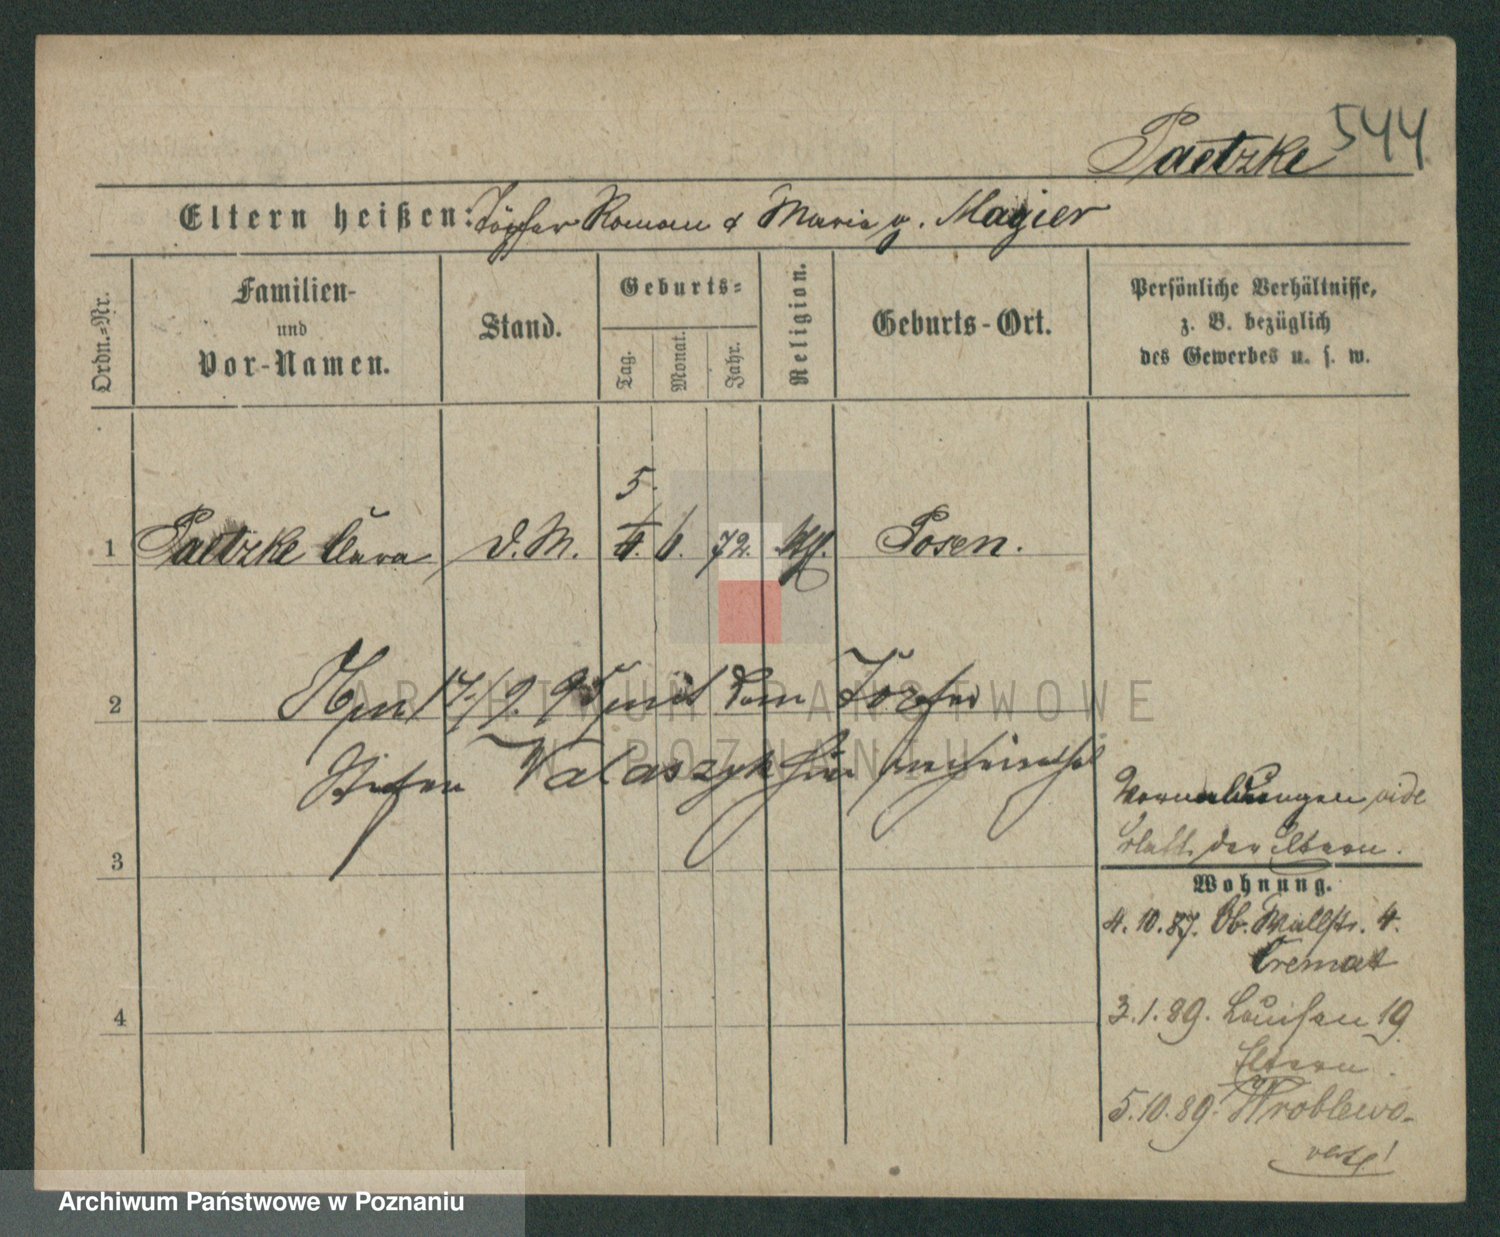 Paetzke 544
Eltern heißen: Töpfer Roman & Maria g. Magier
Ordn.-Nr.
Familien-
und
Vor-Namen.
Stand.
Geburts-
Tag.
Monat.
Jahr.
Religion.
Geburts-Ort.
Persönliche Verhältnisse,
z. B. bezüglich
des Gewerbes u. s. w.
5.
1 Paetzke Clara d. M. 4. 6. 72. Posen.
2 17/9. 95 mit dem Töpfer
Stefan Walaszyk hier verheirathet
Vermeldungen vide
Blatt der Eltern.
3
Wohnung.
4. 10. 87. Ob. Wallstr. 4.
Cremat
3. 1. 89. Louisen 19
Eltern.
4
5. 10. 89. Wroblewo-
ARCHIWUM PAŃSTWOWE
W POZNANIU
Archiwum Państwowe w Poznaniu